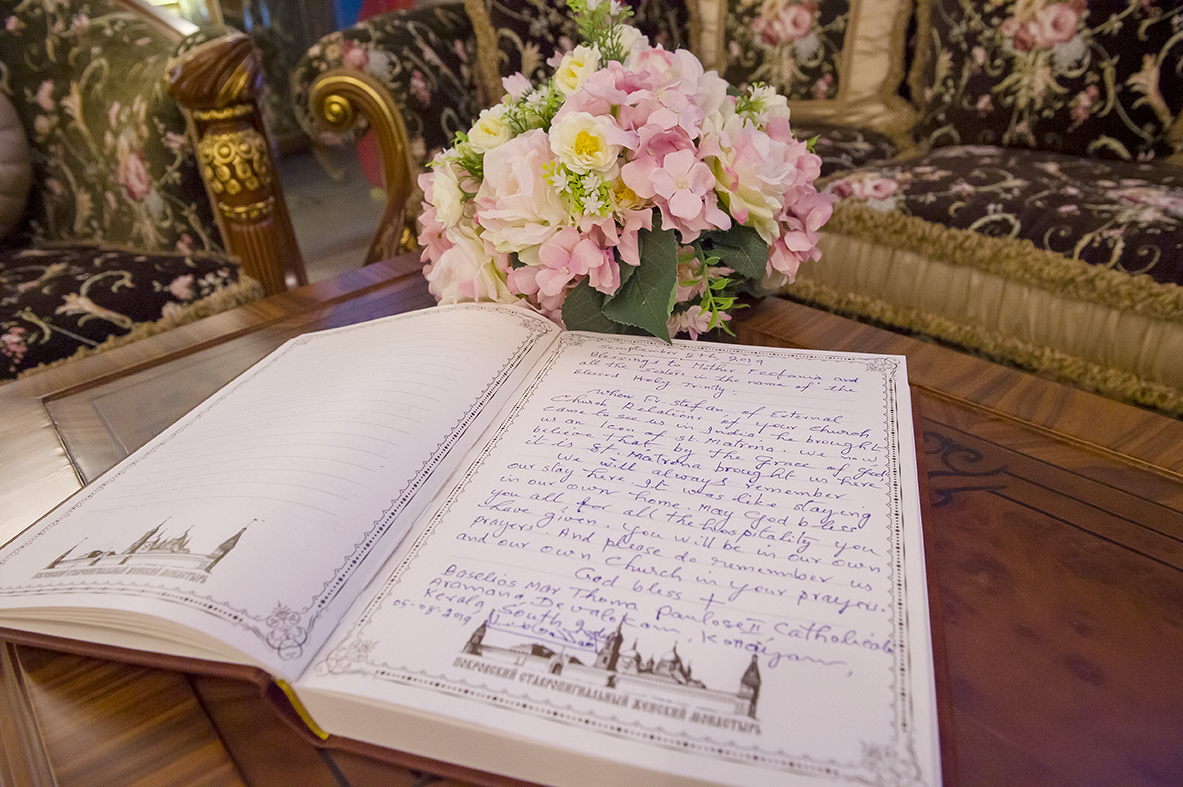 September 5th, 2019
Blessings to Mother Feofania and
all the Sisters in the name of the
blessed Holy Trinity.
When Fr. Stefan, of External
Church Relations of your church
came to see us in India, he brought
us an Icon of St. Matrona. We now
believe that by the Grace of God,
it is St. Matrona brought us here
We will always remember
our stay here. It was like staying
in our own home. May God bless
you all, for all the hospitality you
have given. You will be in our own
prayers. And please do remember us
and our own Church in your prayers.
God bless +
Baselios Mar Thoma Paulose II Catholicos
Aramana, Devalokam, Kottayam,
Kerala, South
05-09-2019
ПОКРОВСКИЙ СТАВРОПИГИАЛЬНЫЙ ЖЕНСКИЙ МОНАСТЫРЬ
ПОКРОВСКИЙ СТАВРОПИГИАЛЬНЫЙ ЖЕНСКИЙ МОНАСТЫРЬ